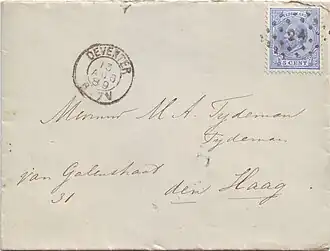 DEVENTER
13
AUG
89
7V
24
5 CENT
Mevrouw M. A. Tydeman
Tydeman
van Galenstraat
31
den Haag